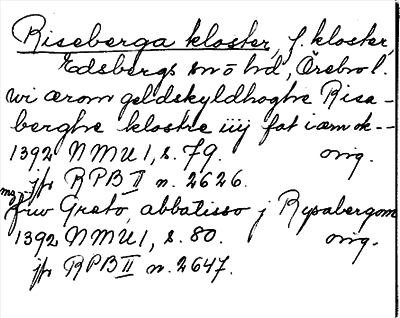 Riseberga kloster, f. kloster,
Edsbergs sn o hd, Örebro l.
wi ærom geldskyldhoghe Risa-
berghe klostre iiij fat iærn ok--
1392 NMU 1, s. 79. orig.
jfr RPB II n. 2626.
frw Greto, abbatisso j Rysabergom
1392 NMU 1, s. 80. orig.
jfr RPB II n. 2647.